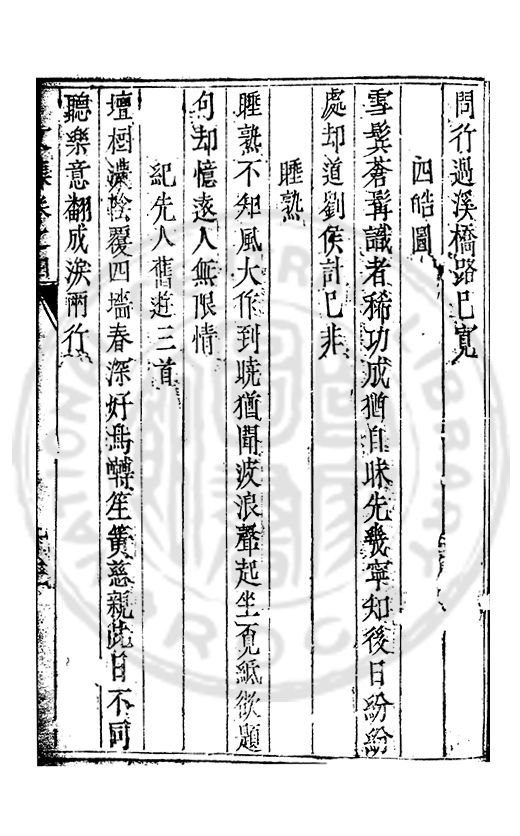 問行過溪橋路已寬
四皓圖
雪鬂蒼髯識者稀功成猶自昧先幾寧知後日紛紛
處却道劉侯計已非
睡熟
睡熟不知風大作到曉猶聞波浪聲起坐覓紙欲題
句却憶遠人無限情
紀先人舊遊三首
壇樹濃陰覆四墻春深好鳥囀笙簧慈親此日不同
聽樂意翻成淚兩行
集卷之四